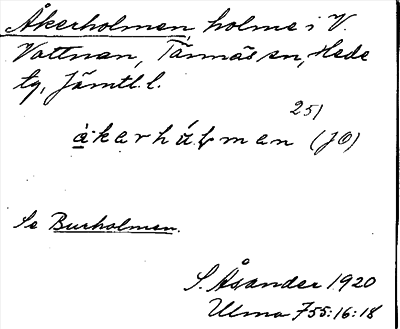 Åkerholmen, holme i V.
Vattnan, Tännäs sn, Hede
tg, Jämtl. l.
25)
åkarhúḷman (JO)
Se Burholmen.
S. Åsander 1920
Ulma 755:16:18